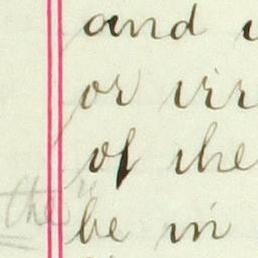 and
or irr
of the
the
be in